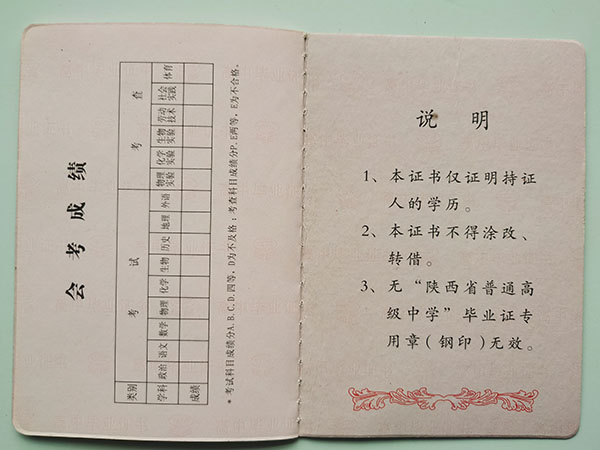 会考成绩
类别 考试 考查
学科 政治 语文 数学 物理 化学 生物 历史 地理 外语 物理实验 化学实验 生物实验 劳动技术 社会实践 体育
成绩
*考试科目成绩分A.B.C.D.四等，D为不及格；考查科目成绩分P.E两等，E为不合格。
说 明
1、本证书仅证明持证
人的学历。
2、本证书不得涂改、
转借。
3、无“陕西省普通高
级中学”毕业证专
用章（钢印）无效。